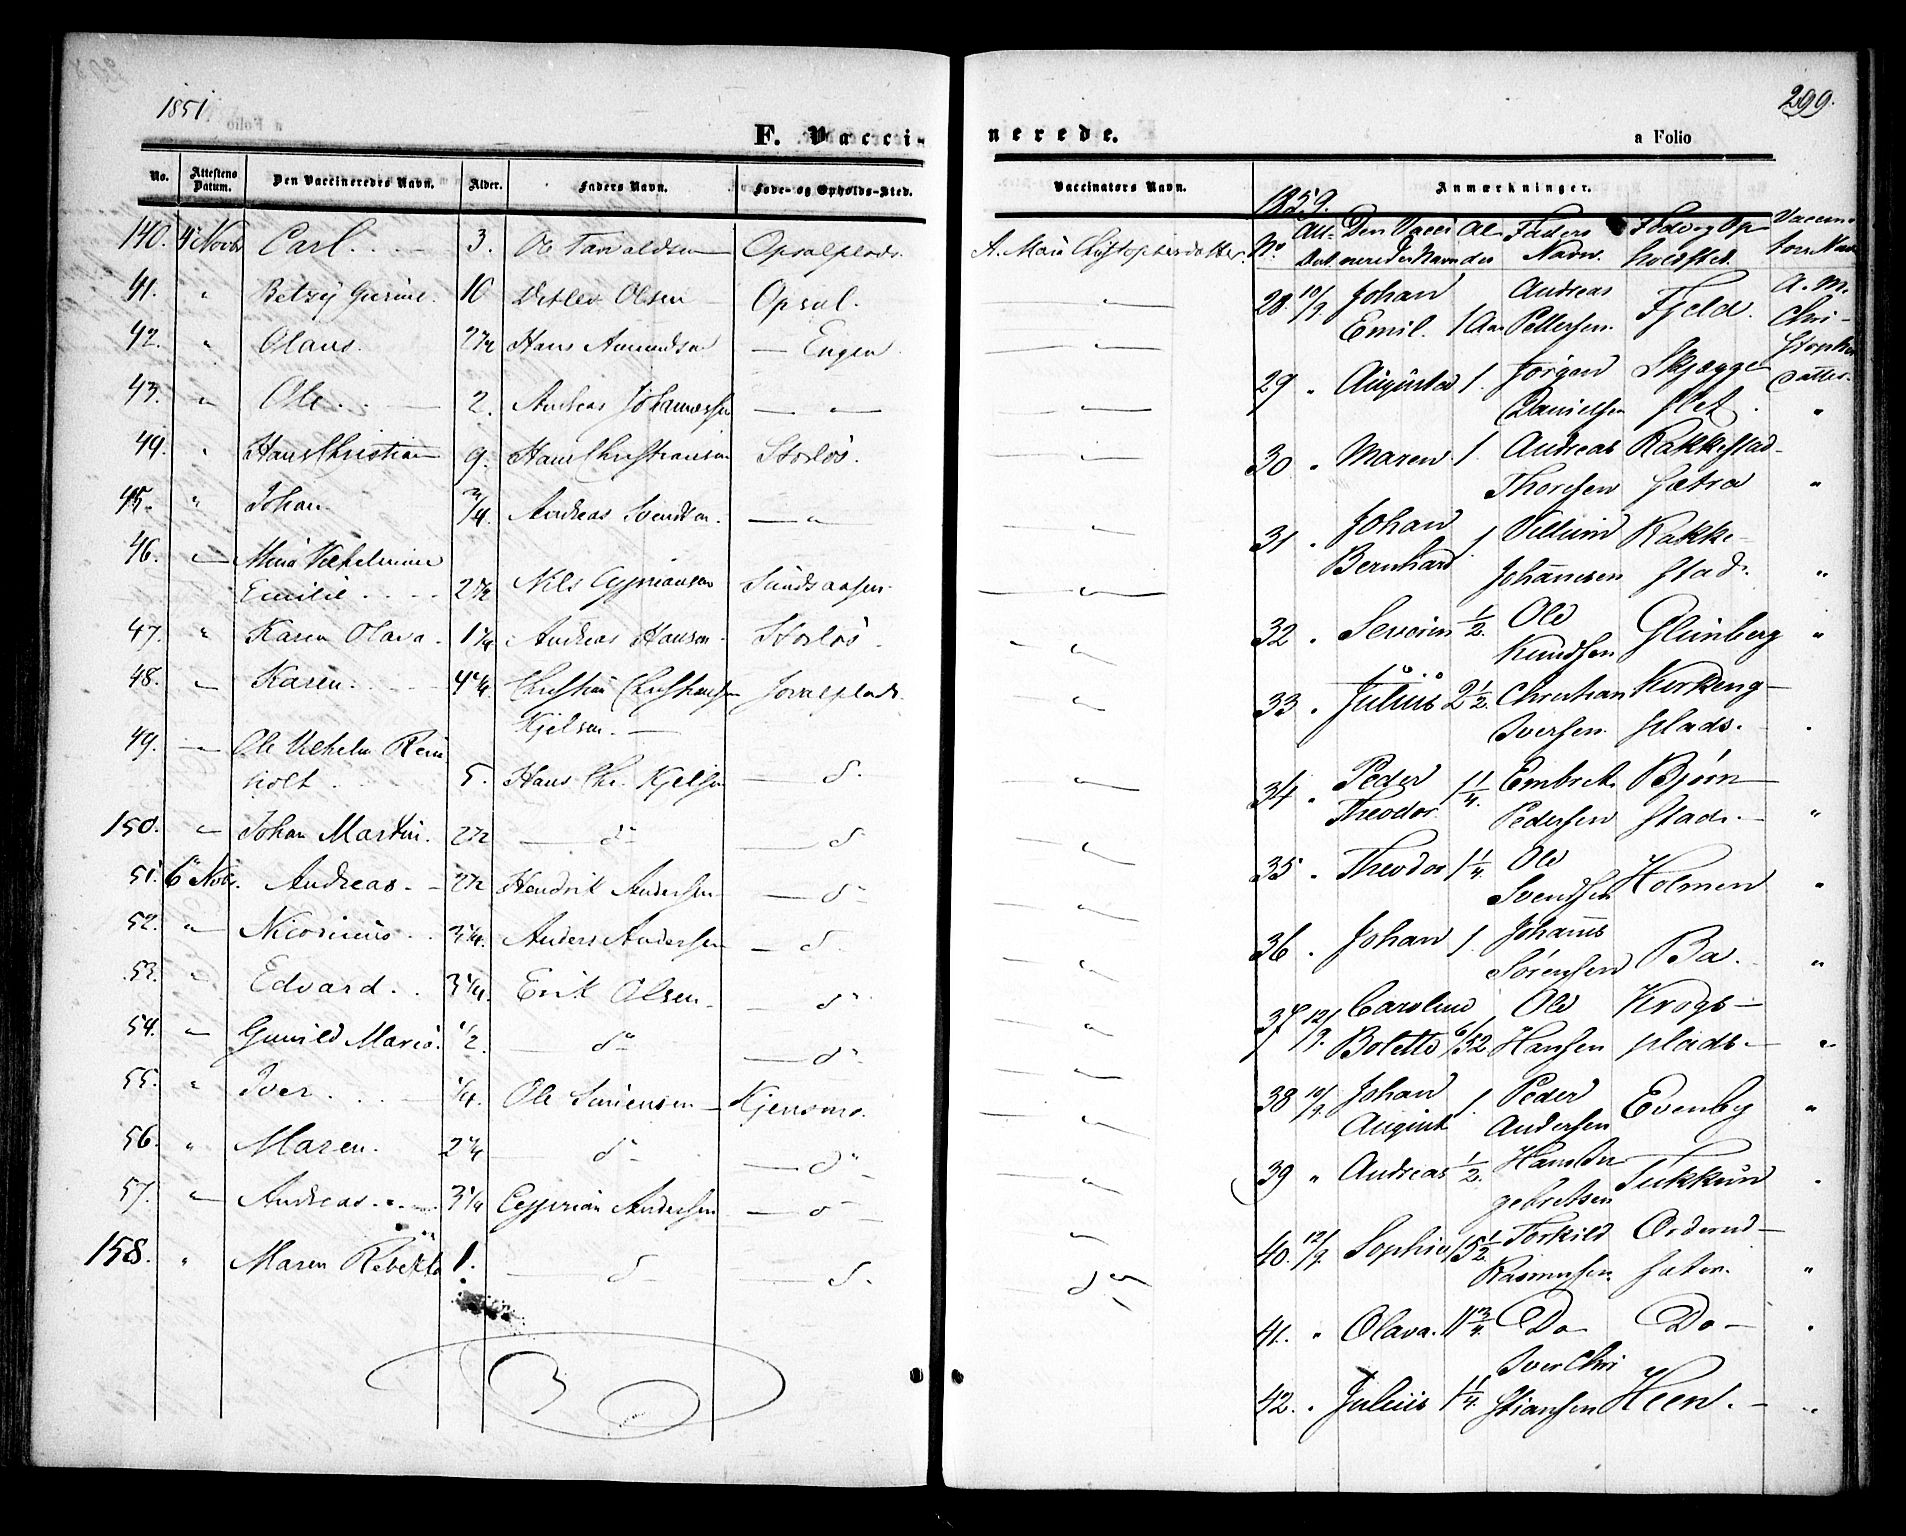 1851
299.
F. Vacci-
nerede.
a Folio
No. Attestens Datum. Den Vaccineredes Navn. Alder. Faders Navn. Føde- og Opholds-Sted.
Vaccinators Navn. Anmærkninger.
140. 4 Novbr Carl. 3. Opsalplads. A. Maria Christophersdatter.
41. " 10 Detlev Olsen Opsal.
42. " Olaus. 2 1/2 Hans Amundsen — Engen.
43. " Ole. 2. Andreas Johannessen — " —
44. " Hans Christian 9. Hans Christiansen Storløs.
45. " Johan. 3/4. Andreas Svendsen. — " —
46. " Maria Vilhelmine
Emilie 2 1/2 Nils Cypriansen Sundsaasen.
47. " Karen Olava. 1 1/4 Andreas Hansen. Storløs.
48. " Karen. 4 1/4 Christian Christiansen
Kjelsen. —
49. — Ole Vilhelm Rein
holt. 5. Hans Chr. Kjelsen — d.
150. " Johan Martin. 2 1/2 — do — d
51. 6 Novbr. Andreas. 2 1/2 Hendrik Andersen — d —
52. " 3 1/4. Anders Andersen — d
53. " Edvard. 3 1/4. Erik Olsen. — do
54. " Gunild Maria. 1/2. — do — do
55. " Iver. 1/4. Ole Sørensen — Kjensmo.
56. " Maren. 2 1/4 — do — — do
57. " Andreas. 3 1/4 Cyprian Andersen — d —
158. " Maren Rebekka 1. — d — — d. do
1859.
No Att. Dat. Den Vacci neredes Navn Al der Faders Navn. Føde og Op holdsted. Vaccina tors Navn
28. 10/9. Johan Emil. 1 Aar Andreas Pettersen. Fjeld. A. M. Chri- stophers datter.
29 " Augusta 1. Jørgen Danielsen Skjægge flet. "
30 " Maren. 1. Andreas Thoresen Rakkestad- sætra "
31 " Johan Bernhard 1. Villum Johannesen Rakke- stad. "
32 " Severin 1/2. Ole Knudsen Glimberg "
33. " Julius 2 1/2. Christian Iversen. Kirkeng- plads. "
34 " Peder Theodor. 1 1/4. Embret Pedersen Bjørn- stad. — "
35 " Theodor 1 1/4. Ole Svendsen Holmen "
36 " Johan 1. Johannes Sørensen Ba. "
37 12/9. Caroline Bolette 6/52 Ole Hansen Krogs- plads — "
38 10/9. Johan August 1. Peder Andersen Evenby "
39 " Andreas 1/2. Hans In gebretsen Tukkun "
40. 12/9. Sophie 15 1/2 Torkild Rasmussen. Orderud- sæter. "
41. " Olava. 11 3/4. Do — Do — "
42. " Julius 1 1/4. Iver Chri stiansen Heen. — "